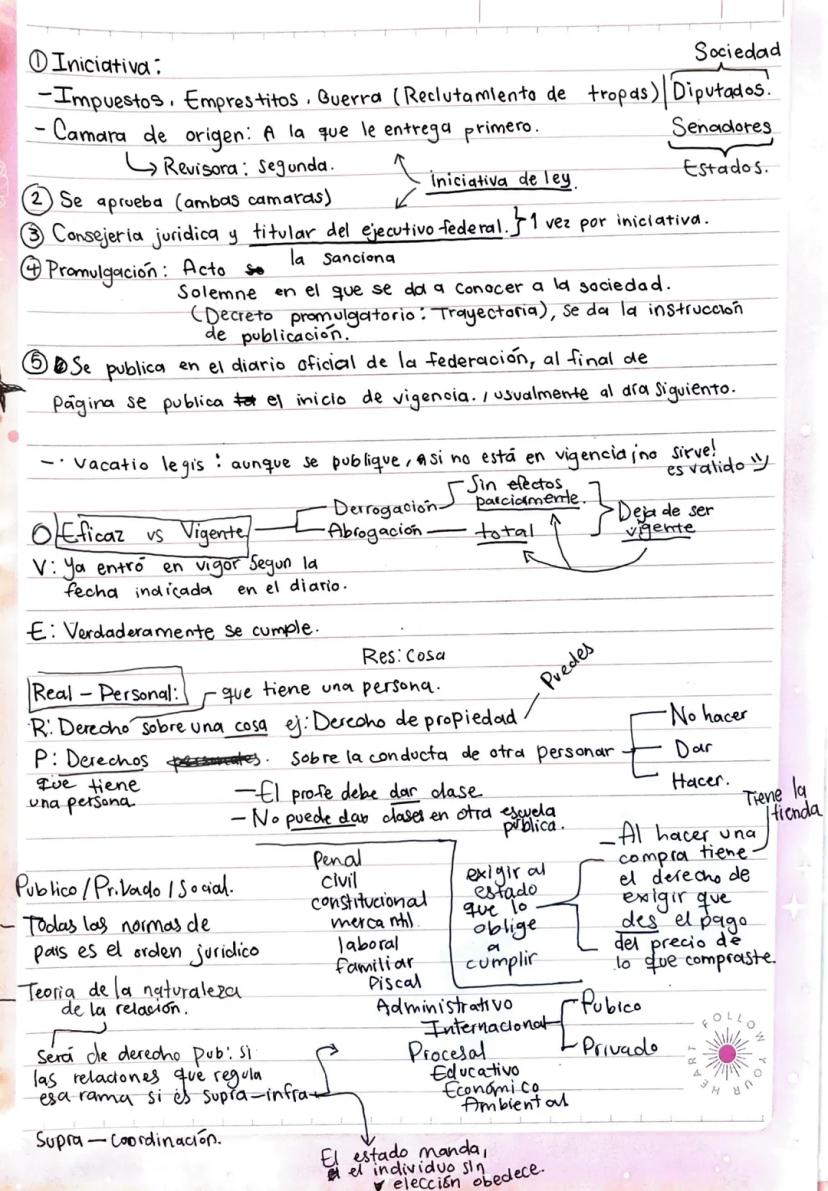 Sociedad
① Iniciativa:
- Impuestos, Emprestitos, Guerra (Reclutamiento de tropas) | Diputados.
- Camara de origen: A la que le entrega primero.
Senadores
↳ Revisora: segunda.
iniciativa de ley.
Estados.
② Se aprueba (ambas camaras)
③ Consejeria juridica y titular del ejecutivo federal. } 1 vez por iniciativa.
la sanciona
④ Promulgación: Acto
Solemne en el que se da a conocer a la sociedad.
(Decreto promulgatorio: Trayectoria), se da la instrucción
de publicación.
⑤ Se publica en el diario oficial de la federación, al final de
Página se publica el inicio de vigencia. / usualmente al día siguiento.
-· Vacatio legis: aunque se publique, si no está en vigencia ¡no sirve!
es valido
Sin efectos
parcialmente.
Derrogación
Eficaz vs Vigente
Abrogación — total
Deja de ser
vigente
V: Ya entró en vigor Segun la
fecha indicada en el diario.
E: Verdaderamente se cumple.
Res: Cosa
Puedes
Real - Personal:
que tiene una persona.
R: Derecho sobre una cosa ej: Derecho de propiedad
P: Derechos sobre la conducta de otra personar
No hacer
Dar
Hacer.
que tiene
una persona
- El profe debe dar clase
- No puede dar clases en otra escuela
pública.
Tiene la
tienda
- Al hacer una
compra tiene
el derecho de
exigir que
des el pago
del precio de
lo que compraste.
exigir al
estado
que lo
oblige
a
cumplir
Publico / Privado / Social.
Penal
civil
constitucional
mercantil
laboral
familiar
Fiscal
Administrativo
Internacional
Pubico
Privado
Procesal
Educativo
Económico
Ambiental
- Todas las normas de
país es el orden juridico
- Teoria de la naturaleza
de la relación.
Será de derecho pub: si
las relaciones que regula
esa rama si es supra-infra
Supra - Coordinación.
El estado manda,
el individuo sin
elección obedece.
FOLLOW YOUR HEART